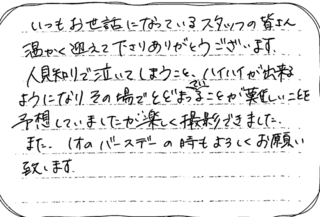 いつもお世話になっているスタッフの皆さん
温かく迎えて下さりありがとうございます。
人見知りで泣いてしまうこと、ハイハイが出来る
ようになりその場でとどまっていることが難しいことを
予想していましたが楽しく撮影できました。
また、1才のバースデーの時もよろしくお願い
致します。